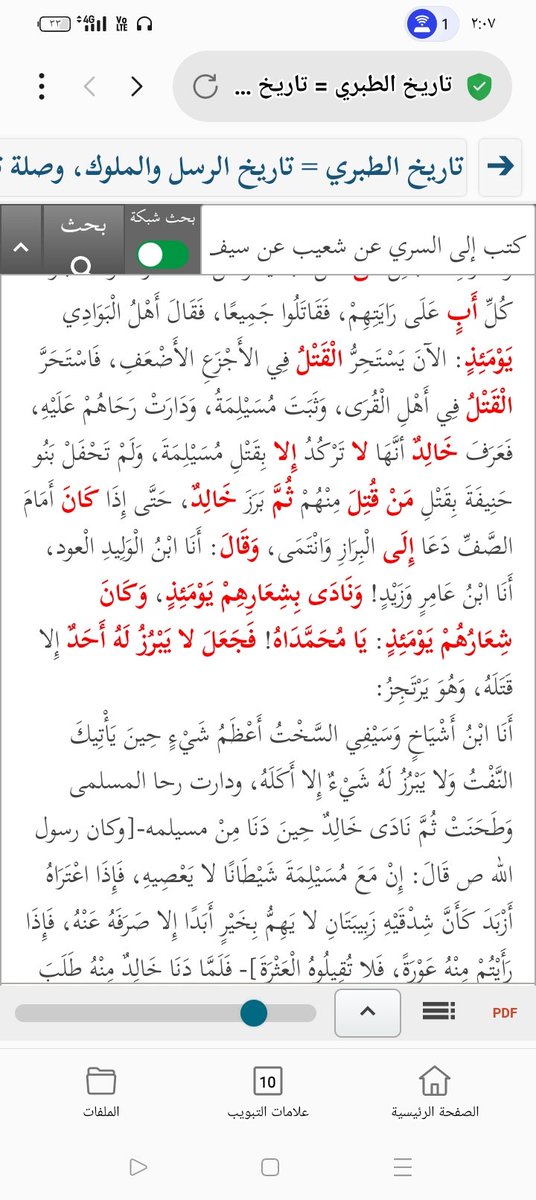 ٢:٠٧
1
4G
Vo LTE
٣٣
تاريخ الطبري = تاريخ ...
تاريخ الطبري = تاريخ الرسل والملوك، وصلة
كتب إلى السري عن شعيب عن سيف
بحث شبكة
بحث
كُلِّ أَبٍ عَلَى رَايَتِهِمْ، فَقَاتَلُوا جَمِيعًا، فَقَالَ أَهْلُ الْبَوَادِي
يَوْمَئِذٍ: الآنَ يَسْتَحِرُّ الْقَتْلُ فِي الأَجْزَعِ الأَضْعَفِ، فَاسْتَحَرَّ
الْقَتْلُ فِي أَهْلِ الْقُرَى، وَثَبَتَ مُسَيْلِمَةُ، وَدَارَتْ رَحَاهُمْ عَلَيْهِ،
فَعَرَفَ خَالِدٌ أَنَّهَا لا تَرْكُدُ إِلا بِقَتْلِ مُسَيْلِمَةَ، وَلَمْ تَحْفَلْ بَنُو
حَنِيفَةَ بِقَتْلِ مَنْ قُتِلَ مِنْهُمْ ثُمَّ بَرَزَ خَالِدٌ، حَتَّى إِذَا كَانَ أَمَامَ
الصَّفِّ دَعَا إِلَى الْبِرَازِ وَانْتَمَى، وَقَالَ: أَنَا ابْنُ الْوَلِيدِ الْعود،
أَنَا ابْنُ عَامِرٍ وَزَيْدٍ! وَنَادَى بِشِعَارِهِمْ يَوْمَئِذٍ، وَكَانَ
شِعَارُهُمْ يَوْمَئِذٍ: يَا مُحَمَّدَاهُ! فَجَعَلَ لا يَبْرُزُ لَهُ أَحَدٌ إِلا
قَتَلَهُ، وَهُوَ يَرْتَجِزُ:
أَنَا ابْنُ أَشْيَاخٍ وَسَيْفِي السَّخْتُ أَعْظَمُ شَيْءٍ حِينَ يَأْتِيكَ
النَّفْتُ وَلا يَبْرُزُ لَهُ شَيْءٌ إِلا أَكَلَهُ، ودارت رحا المسلمى
وَطَحَنَتْ ثُمَّ نَادَى خَالِدٌ حِينَ دَنَا مِنْ مسيلمه-[وكان رسول
الله ص قَالَ: إِنَّ مَعَ مُسَيْلِمَةَ شَيْطَانًا لا يَعْصِيهِ، فَإِذَا اعْتَرَاهُ
أَزْبَدَ كَأَنَّ شِدْقَيْهِ زَبِيبَتَانِ لا يَهِمُّ بِخَيْرٍ أَبَدًا إِلا صَرَفَهُ عَنْهُ، فَإِذَا
رَأَيْتُمْ مِنْهُ عَوْرَةً، فَلا تُقِيلُوهُ الْعَثْرَةَ]- فَلَمَّا دَنَا خَالِدٌ مِنْهُ طَلَبَ
PDF
الصفحة الرئيسية
10
علامات التبويب
الملفات